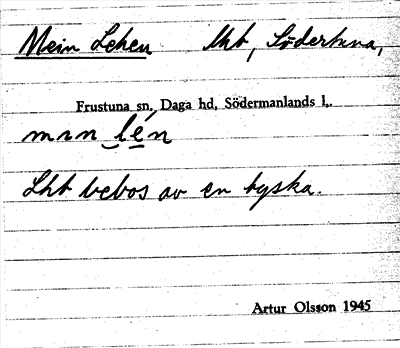 Mein Leben lht, Södertuna,
Frustuna sn, Daga hd, Södermanlands l.
mɪn lén
Lht bebos av en tyska.
Artur Olsson 1945